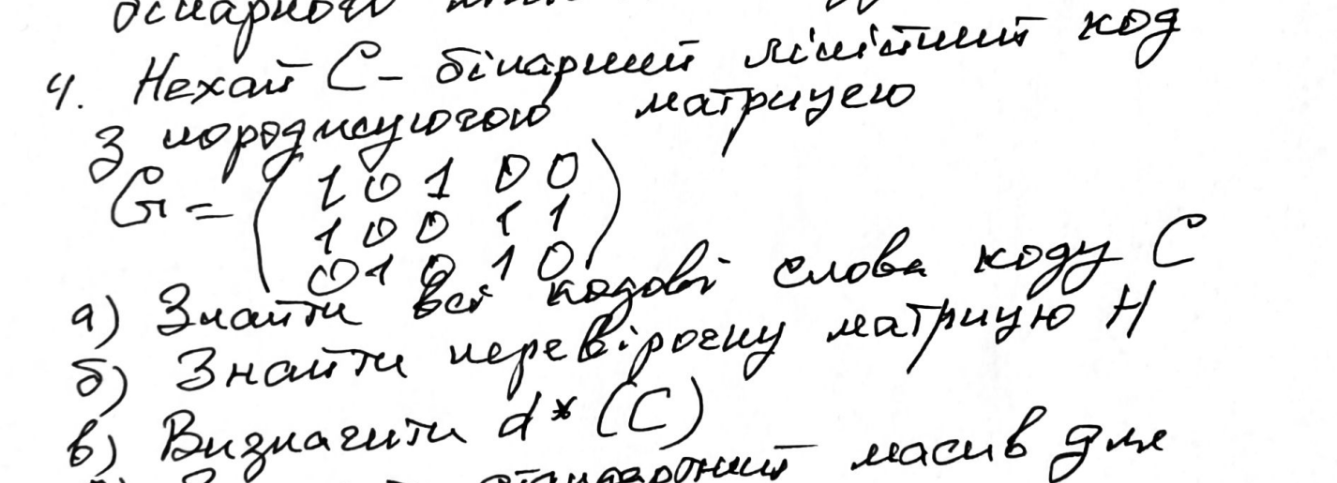 бінарного
4. Нехай C - бінарний лінійний код
з породжуючою матрицею
G = ( 1 0 1 0 0
1 0 0 1 1
0 1 0 1 0 )
а) Знайти всі кодові слова коду C
б) Знайти перевірочну матрицю H
в) Визначити d* (C)
стандартний масив для